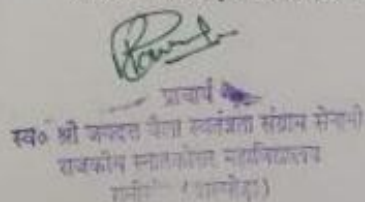 प्राचार्य
स्व० श्री जयदत्त वैला स्वतंत्रता संग्राम सेनानी
राजकीय स्नातकोत्तर महाविद्यालय
(अल्मोड़ा)